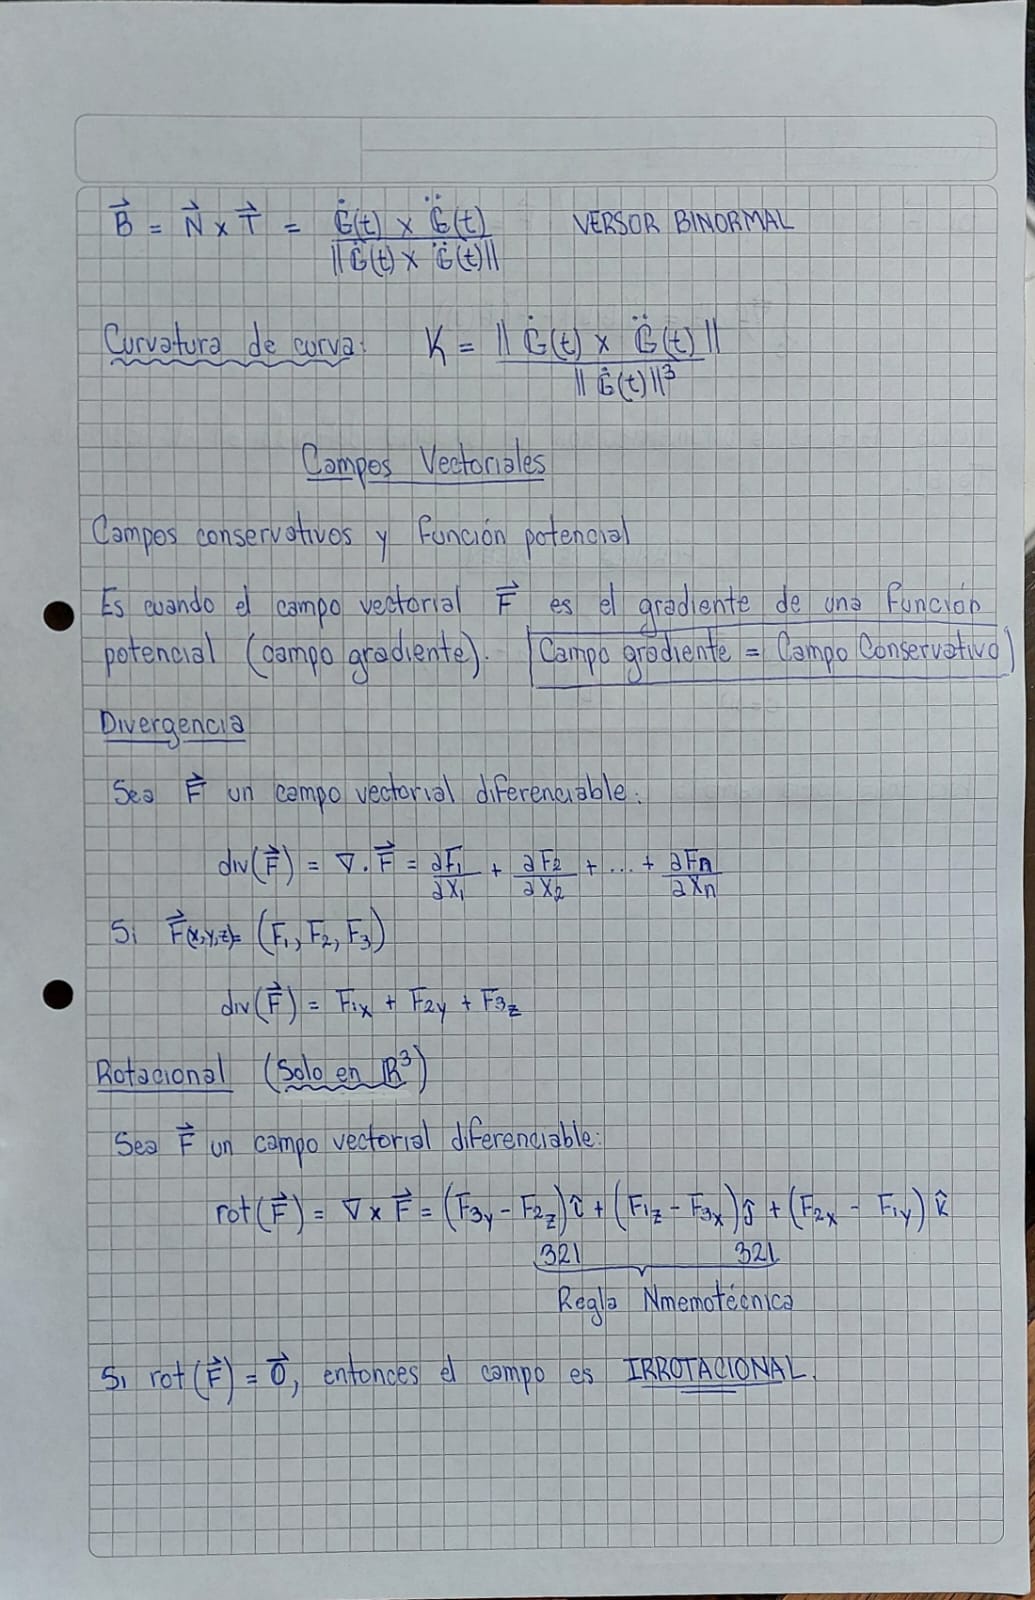 B⃗ = N⃗ x T⃗ = Ġ(t) x G̈(t) / ||Ġ(t) x G̈(t)|| VERSOR BINORMAL
Curvatura de curva: K = || Ġ(t) x G̈(t) || / || Ġ(t) ||³
Campos Vectoriales
Campos conservativos y función potencial
Es cuando el campo vectorial F⃗ es el gradiente de una función
potencial (campo gradiente). Campo gradiente = Campo Conservativo
Divergencia
Sea F⃗ un campo vectorial diferenciable:
div(F⃗) = ∇ . F⃗ = ∂F₁/∂X₁ + ∂F₂/∂X₂ + ... + ∂Fn/∂Xn
Si F⃗(x,y,z)= (F₁, F₂, F₃)
div(F⃗) = F₁x + F₂y + F₃z
Rotacional (Solo en ℝ³)
Sea F⃗ un campo vectorial diferenciable:
rot(F⃗) = ∇ x F⃗ = (F₃y - F₂z)î + (F₁z - F₃x)ĵ + (F₂x - F₁y) k̂
321 321
Regla Nmemotécnica
Si rot(F⃗) = 0⃗, entonces el campo es IRROTACIONAL.